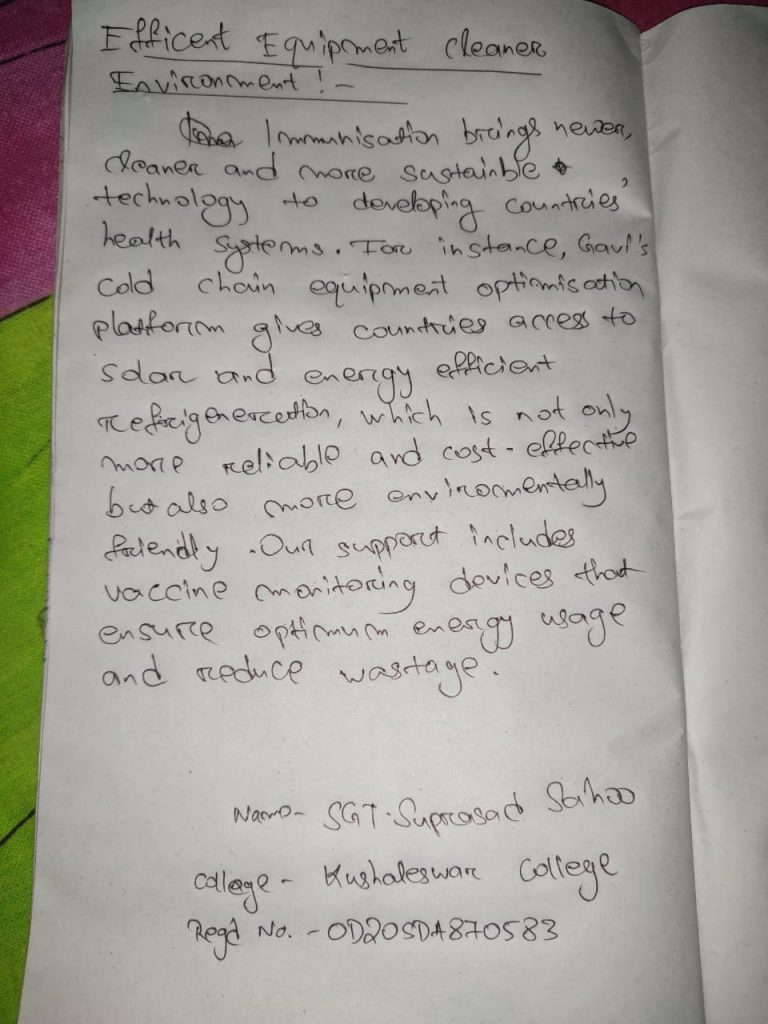 Efficent Equipment cleaner
Environment ! -
Immunisation brings newer,
cleaner and more sustainble
technology to developing countries'
health systems. For instance, Gavi's
cold chain equipment optimisation
platform gives countries access to
solar and energy efficient
refrigenerection, which is not only
more reliable and cost-effective
but also more environmentally
friendly. Our support includes
vaccine monitoring devices that
ensure optimum energy usage
and reduce wastage.
Name- SGT. Suprasad Sahoo
College - Kushaleswar College
Regd No. - OD20SDA870583